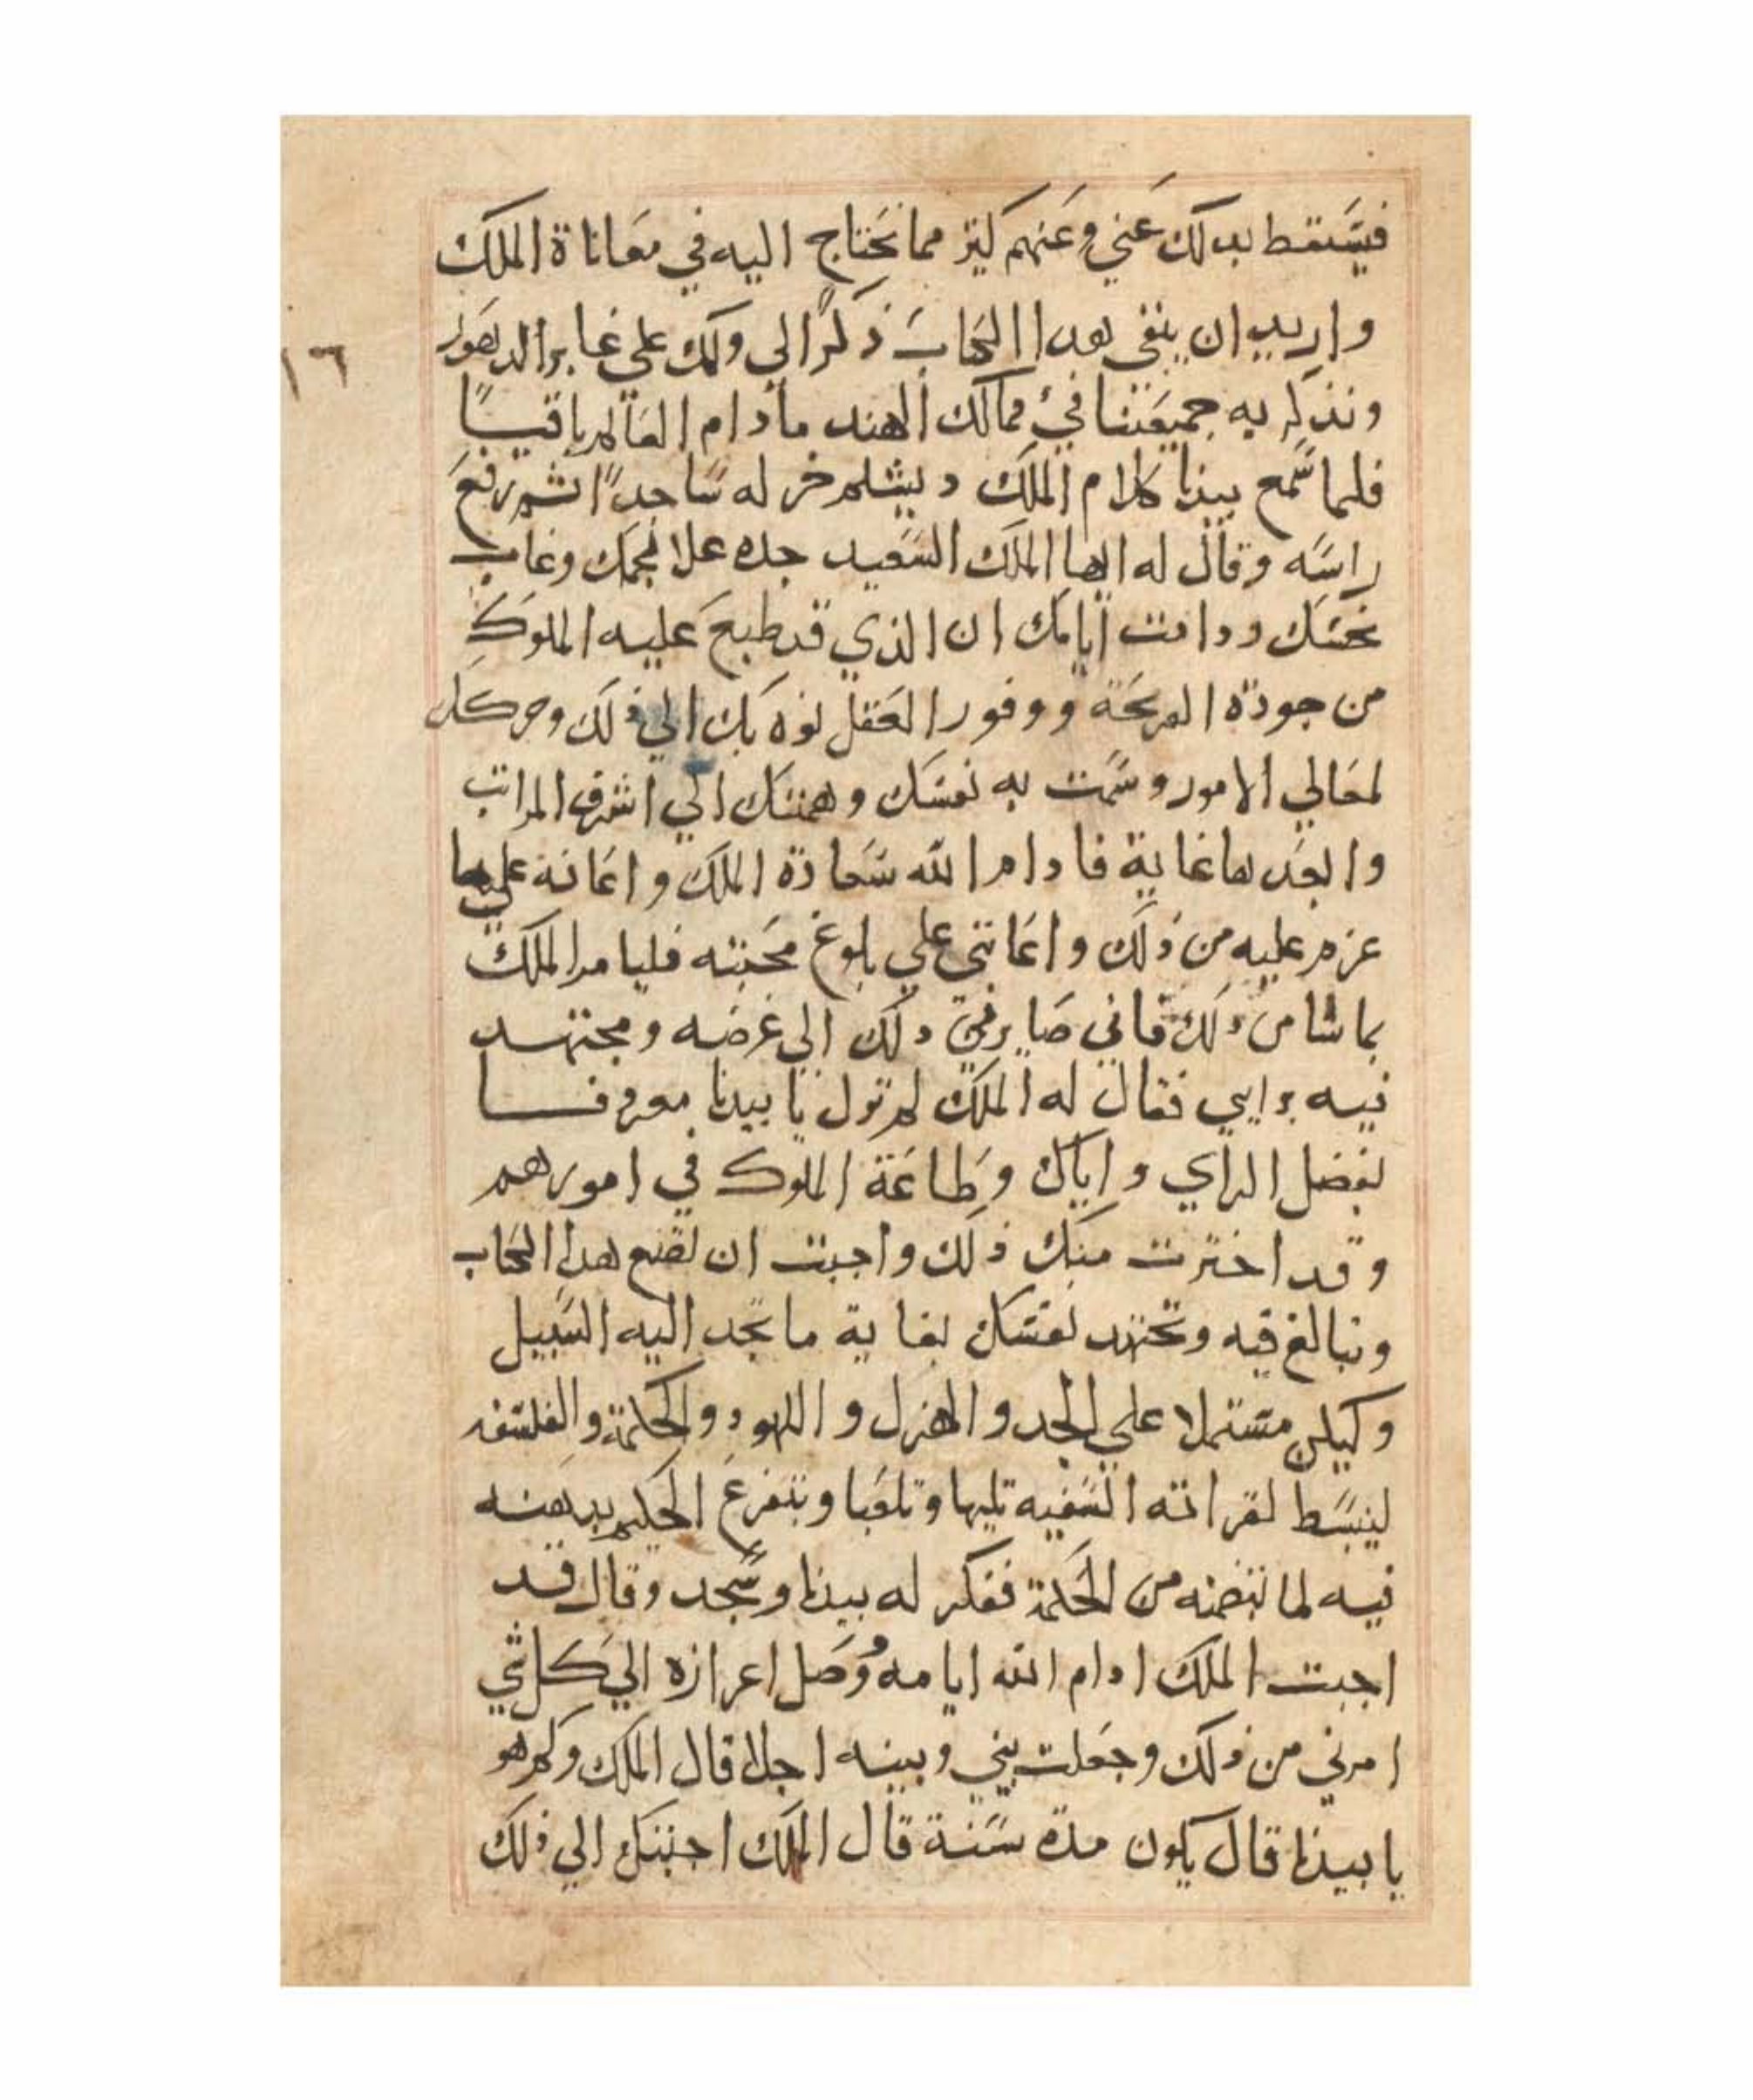 فيسقط بدلك عني وعنهم كثير مما نحتاج اليه في معاناة الملك
واريد ان يبقى هدا الكتاب ذكرا لي ولك على غابر الدهور
١٦
ونذكر به جميعنا في ممالك الهند مادام العالم باقيا
فلما سمع بيدبا كلام الملك دبشلم خر له ساجدا ثم رفع
راسه وقال له ايها الملك السعيد جده علا نجمك وغاب
نحسك ودامت ايامك ان الذي قد طبع عليه الملوك
من جودة القريحة ووفور العقل نوه بك الي ذلك وحركك
لمعالي الامور وسمت به نفسك وهمتك الي اشرف المراتب
وابعدها غاية فادام الله سعادة الملك واعانه علي ما
عزم عليه من ذلك واعانني علي بلوغ محبته فليامر الملك
بما شا من ذلك فاني صاير في دلك الي غرضه ومجتهد
فيه برايي فقال له الملك لم تزل يا بيدبا معروفا
بفضل الراي واياك وطاعة الملوك في امورهم
وقد اخترت منك ذلك واجبت ان تصنع هدا الكتاب
وتبالغ فيه وتجتهد نفسك بغاية ما تجد اليه السبيل
وليكن مشتملا علي الجد والهزل واللهو والحكمة والفلسفه
لينبسط لقراته السفيه تليها وتلعبا ويتفرغ الحكيم بدهنه
فيه لما تضمنه من الحكمة ففكر له بيدبا وسجد وقال قد
اجبت الملك ادام الله ايامه ووصل اعزازه الي كل شي
امرني من ذلك وجعلت بيني وبينه اجلا قال الملك وكم هو
يا بيدبا قال يكون مدة سنة قال الملك اجبتك الي ذلك